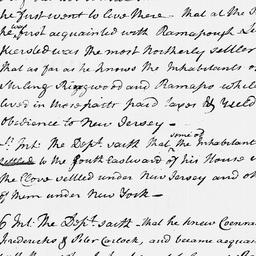 he first went to live there — that at the
he was first acquainted with Ramapough
Kiersled was the most Northerly settler
that as far as he knows the Inhabitants
Sterling Ringwood and Ramapo which
lived in those parts paid Taxes & Yeeld
Obedience to New Jersey —
5: Int: The Dept. saith that some of the Inhabitant
settled to the South Eastward of his House
the Clove settled under New Jersey and
of them under New York —
6 Int: The Dept. saith — that he knew Coenra
Fredericks & Peter Carlock, and became acqua